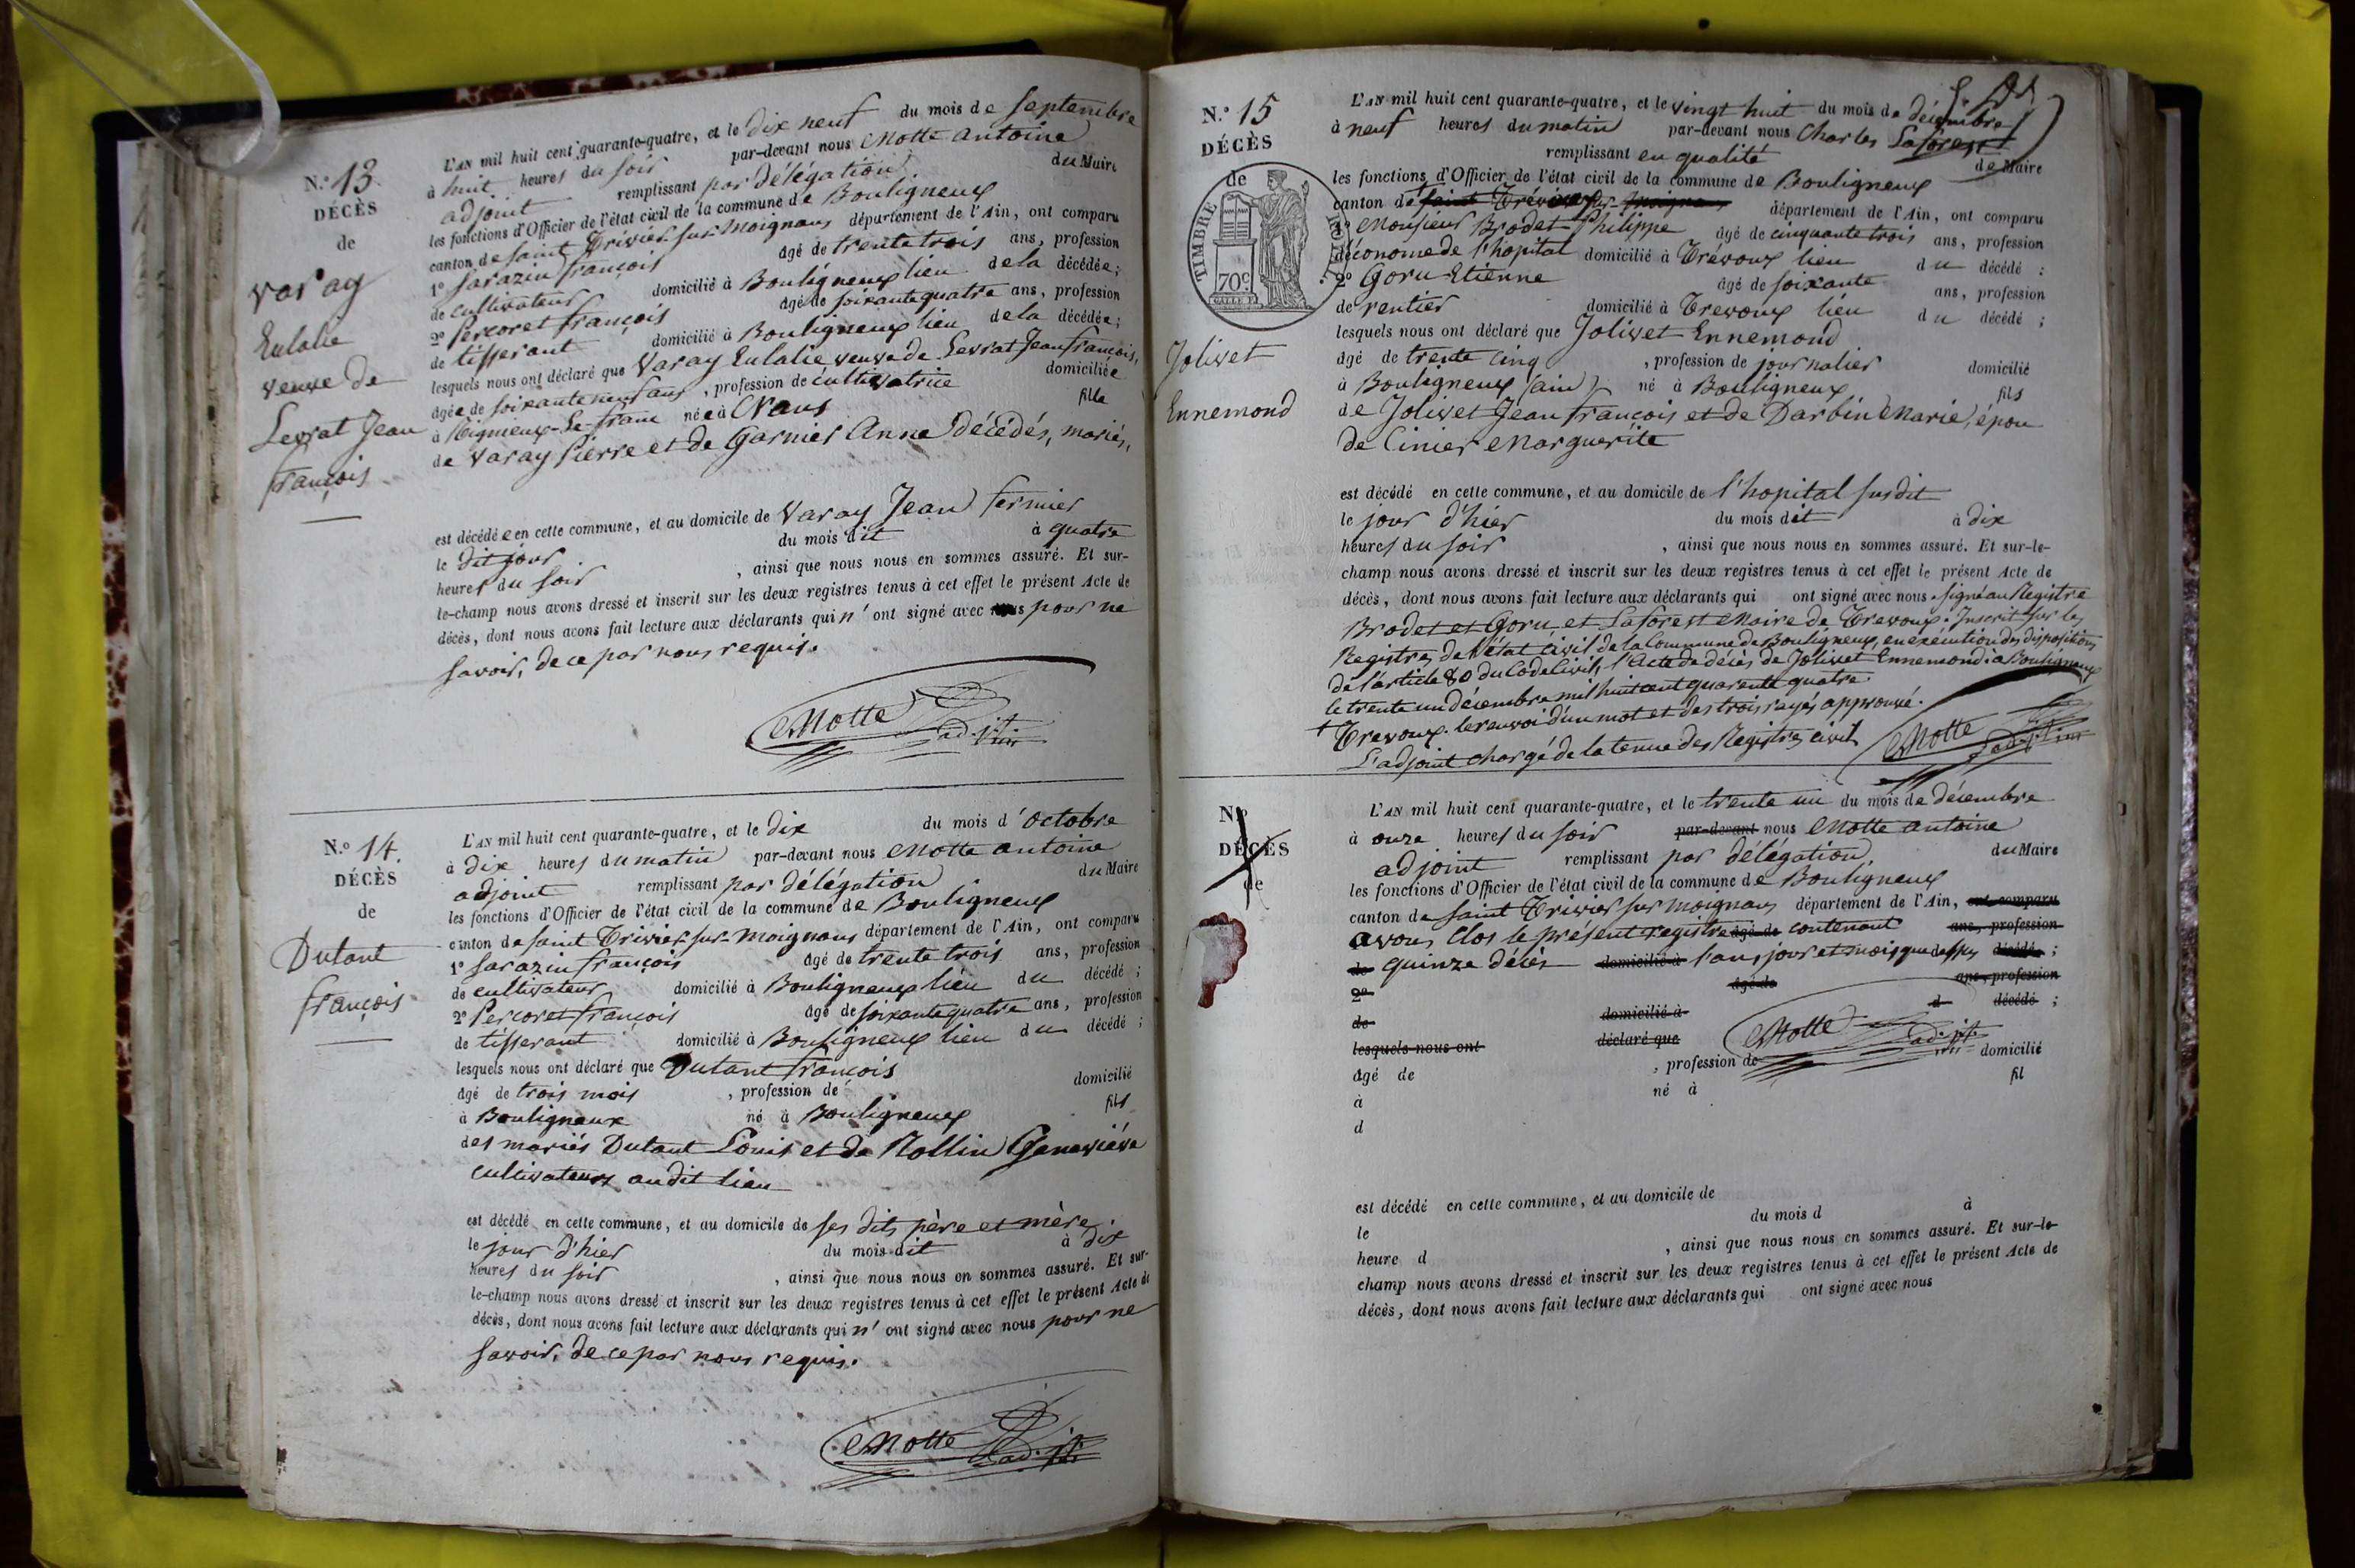 N.º 13.
DÉCÈS
de
Varay
Eulalie
veuve de
Levrat Jean
françois
L'AN mil huit cent quarante-quatre, et le dix neuf du mois de septembre
à huit heures du soir par-devant nous Motte antoine
adjoint remplissant par délégation du Maire
les fonctions d'Officier de l'état civil de la commune de Bouligneux
canton de saint Trivier-sur-Moignans département de l'Ain, ont comparu
1º Sarazin françois âgé de trente trois ans, profession
de cultivateur domicilié à Bouligneux lieu de la décédée;
2º Percoret françois âgé de soixante quatre ans, profession
de tisserant domicilié à Bouligneux lieu de la décédée;
lesquels nous ont déclaré que Varay Eulalie veuve de Levrat Jean françois,
âgée de soixante neuf ans, profession de cultivatrice domiciliée
à Rigneux-Le-franc née à Crans fille
de Varay Pierre et de Garnier Anne décédés, mariés,
est décédée en cette commune, et au domicile de Varay Jean fermier
le dit jour du mois dit à quatre
heures du soir, ainsi que nous nous en sommes assuré. Et sur-
le-champ nous avons dressé et inscrit sur les deux registres tenus à cet effet le présent Acte de
décès, dont nous avons fait lecture aux déclarants qui n' ont signé avec nous pour ne
savoir, de ce par nous requis.
Motte adj.t
N.º 14.
DÉCÈS
de
Dutant
françois
L'AN mil huit cent quarante-quatre, et le dix du mois d'octobre
à dix heures du matin par-devant nous Motte antoine
adjoint remplissant par délégation du Maire
les fonctions d'Officier de l'état civil de la commune de Bouligneux
canton de saint Trivier-sur-Moignans département de l'Ain, ont comparu
1º Sarazin françois âgé de trente trois ans, profession
de cultivateur domicilié à Bouligneux lieu du décédé;
2º Percoret françois âgé de soixante quatre ans, profession
de tisserant domicilié à Bouligneux lieu du décédé;
lesquels nous ont déclaré que Dutant françois
âgé de trois mois, profession de domicilié
à Bouligneux né à Bouligneux fils
des mariés Dutant Louis et de Rollin Geneviève
cultivateurs au dit lieu
est décédé en cette commune, et au domicile de ses dits père et mère
le jour d'hier du mois dit à dix
heures du soir, ainsi que nous nous en sommes assuré. Et sur-
le-champ nous avons dressé et inscrit sur les deux registres tenus à cet effet le présent Acte de
décès, dont nous avons fait lecture aux déclarants qui n' ont signé avec nous pour ne
savoir, de ce par nous requis.
Motte adj.t
N.º 15
DÉCÈS
de
TIMBRE ROYAL
70C
Jolivet
Ennemond
L'AN mil huit cent quarante-quatre, et le vingt huit du mois de décembre
à neuf heures du matin par-devant nous Charles Laforest
remplissant en qualité de Maire
les fonctions d'Officier de l'état civil de la commune de Bouligneux
canton de saint Trivier sur Moignans département de l'Ain, ont comparu
1º Monsieur Brodet Philippe âgé de cinquante trois ans, profession
d'économe de l'hopital domicilié à Trévoux lieu du décédé;
2º Goru Etienne âgé de soixante ans, profession
de rentier domicilié à Trevoux lieu du décédé;
lesquels nous ont déclaré que Jolivet Ennemond
âgé de trente cinq, profession de journalier domicilié
à Bouligneux (ain) né à Bouligneux fils
de Jolivet Jean françois et de Darbin Marie, épou
de Cinier Marguerite
est décédé en cette commune, et au domicile de l'hopital susdit
le jour d'hier du mois dit à dix
heures du soir, ainsi que nous nous en sommes assuré. Et sur-le-
champ nous avons dressé et inscrit sur les deux registres tenus à cet effet le présent Acte de
décès, dont nous avons fait lecture aux déclarants qui ont signé avec nous. signé au Registre
Brodet et Goru, et Laforest Maire de Trevoux. Inscrit sur les
Registres de l'état civil de la Commune de Bouligneux, en exécution des dispositions
de l'article 80 du Code Civil, l'Acte de décès de Jolivet Ennemond à Bouligneux
le trente un décembre mil huit cent quarante quatre.
+ Trevoux. le renvoi d'un mot et des trois rayés approuvé.
L'adjoint chargé de la tenue des Registres civils
Motte adjoint
Nº
DÉCÈS
de
L'AN mil huit cent quarante-quatre, et le trente un du mois de décembre
à onze heures du soir par-devant nous Motte antoine
adjoint remplissant par délégation, du Maire
les fonctions d'Officier de l'état civil de la commune de Bouligneux
canton de saint Trivier sur Moignans département de l'Ain, ont comparu
avons clos le présent registre âgé de contenant ans, profession
de quinze décès domicilié à l'an, jour et mois que dessus décédé;
2º âgé de ans, profession
de domicilié à d décédé;
lesquels nous ont déclaré que Motte adj.t
âgé de, profession de domicilié
à né à fil
d
est décédé en cette commune, et au domicile de
le du mois d à
heure d, ainsi que nous nous en sommes assuré. Et sur-le-
champ nous avons dressé et inscrit sur les deux registres tenus à cet effet le présent Acte de
décès, dont nous avons fait lecture aux déclarants qui ont signé avec nous